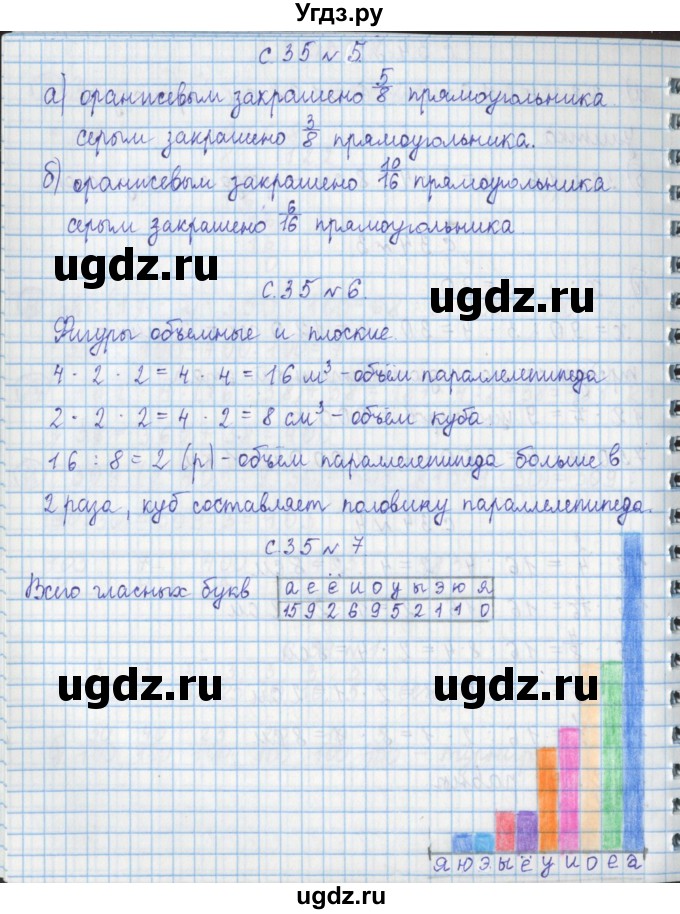 Угдз.ру
с. 35 № 5.
а) оранжевым закрашено 5/8 прямоугольника
серым закрашено 3/8 прямоугольника.
б) оранжевым закрашено 10/16 прямоугольника
серым закрашено 6/16 прямоугольника
ugdz.ru
ugdz.ru
с. 35 № 6.
Фигуры объемные и плоские
4 · 2 · 2 = 4 · 4 = 16 м³ - объём параллелепипеда
2 · 2 · 2 = 4 · 2 = 8 см³ - объём куба
16 : 8 = 2 (р) - объём параллелепипеда больше в
2 раза, куб составляет половину параллелепипеда.
с. 35 № 7
Всего гласных букв
а е ё и о у ы э ю я
15 9 2 6 9 5 2 1 1 0
ugdz.ru
ugdz.ru
я ю э ы ё у и о е а
ugdz.ru